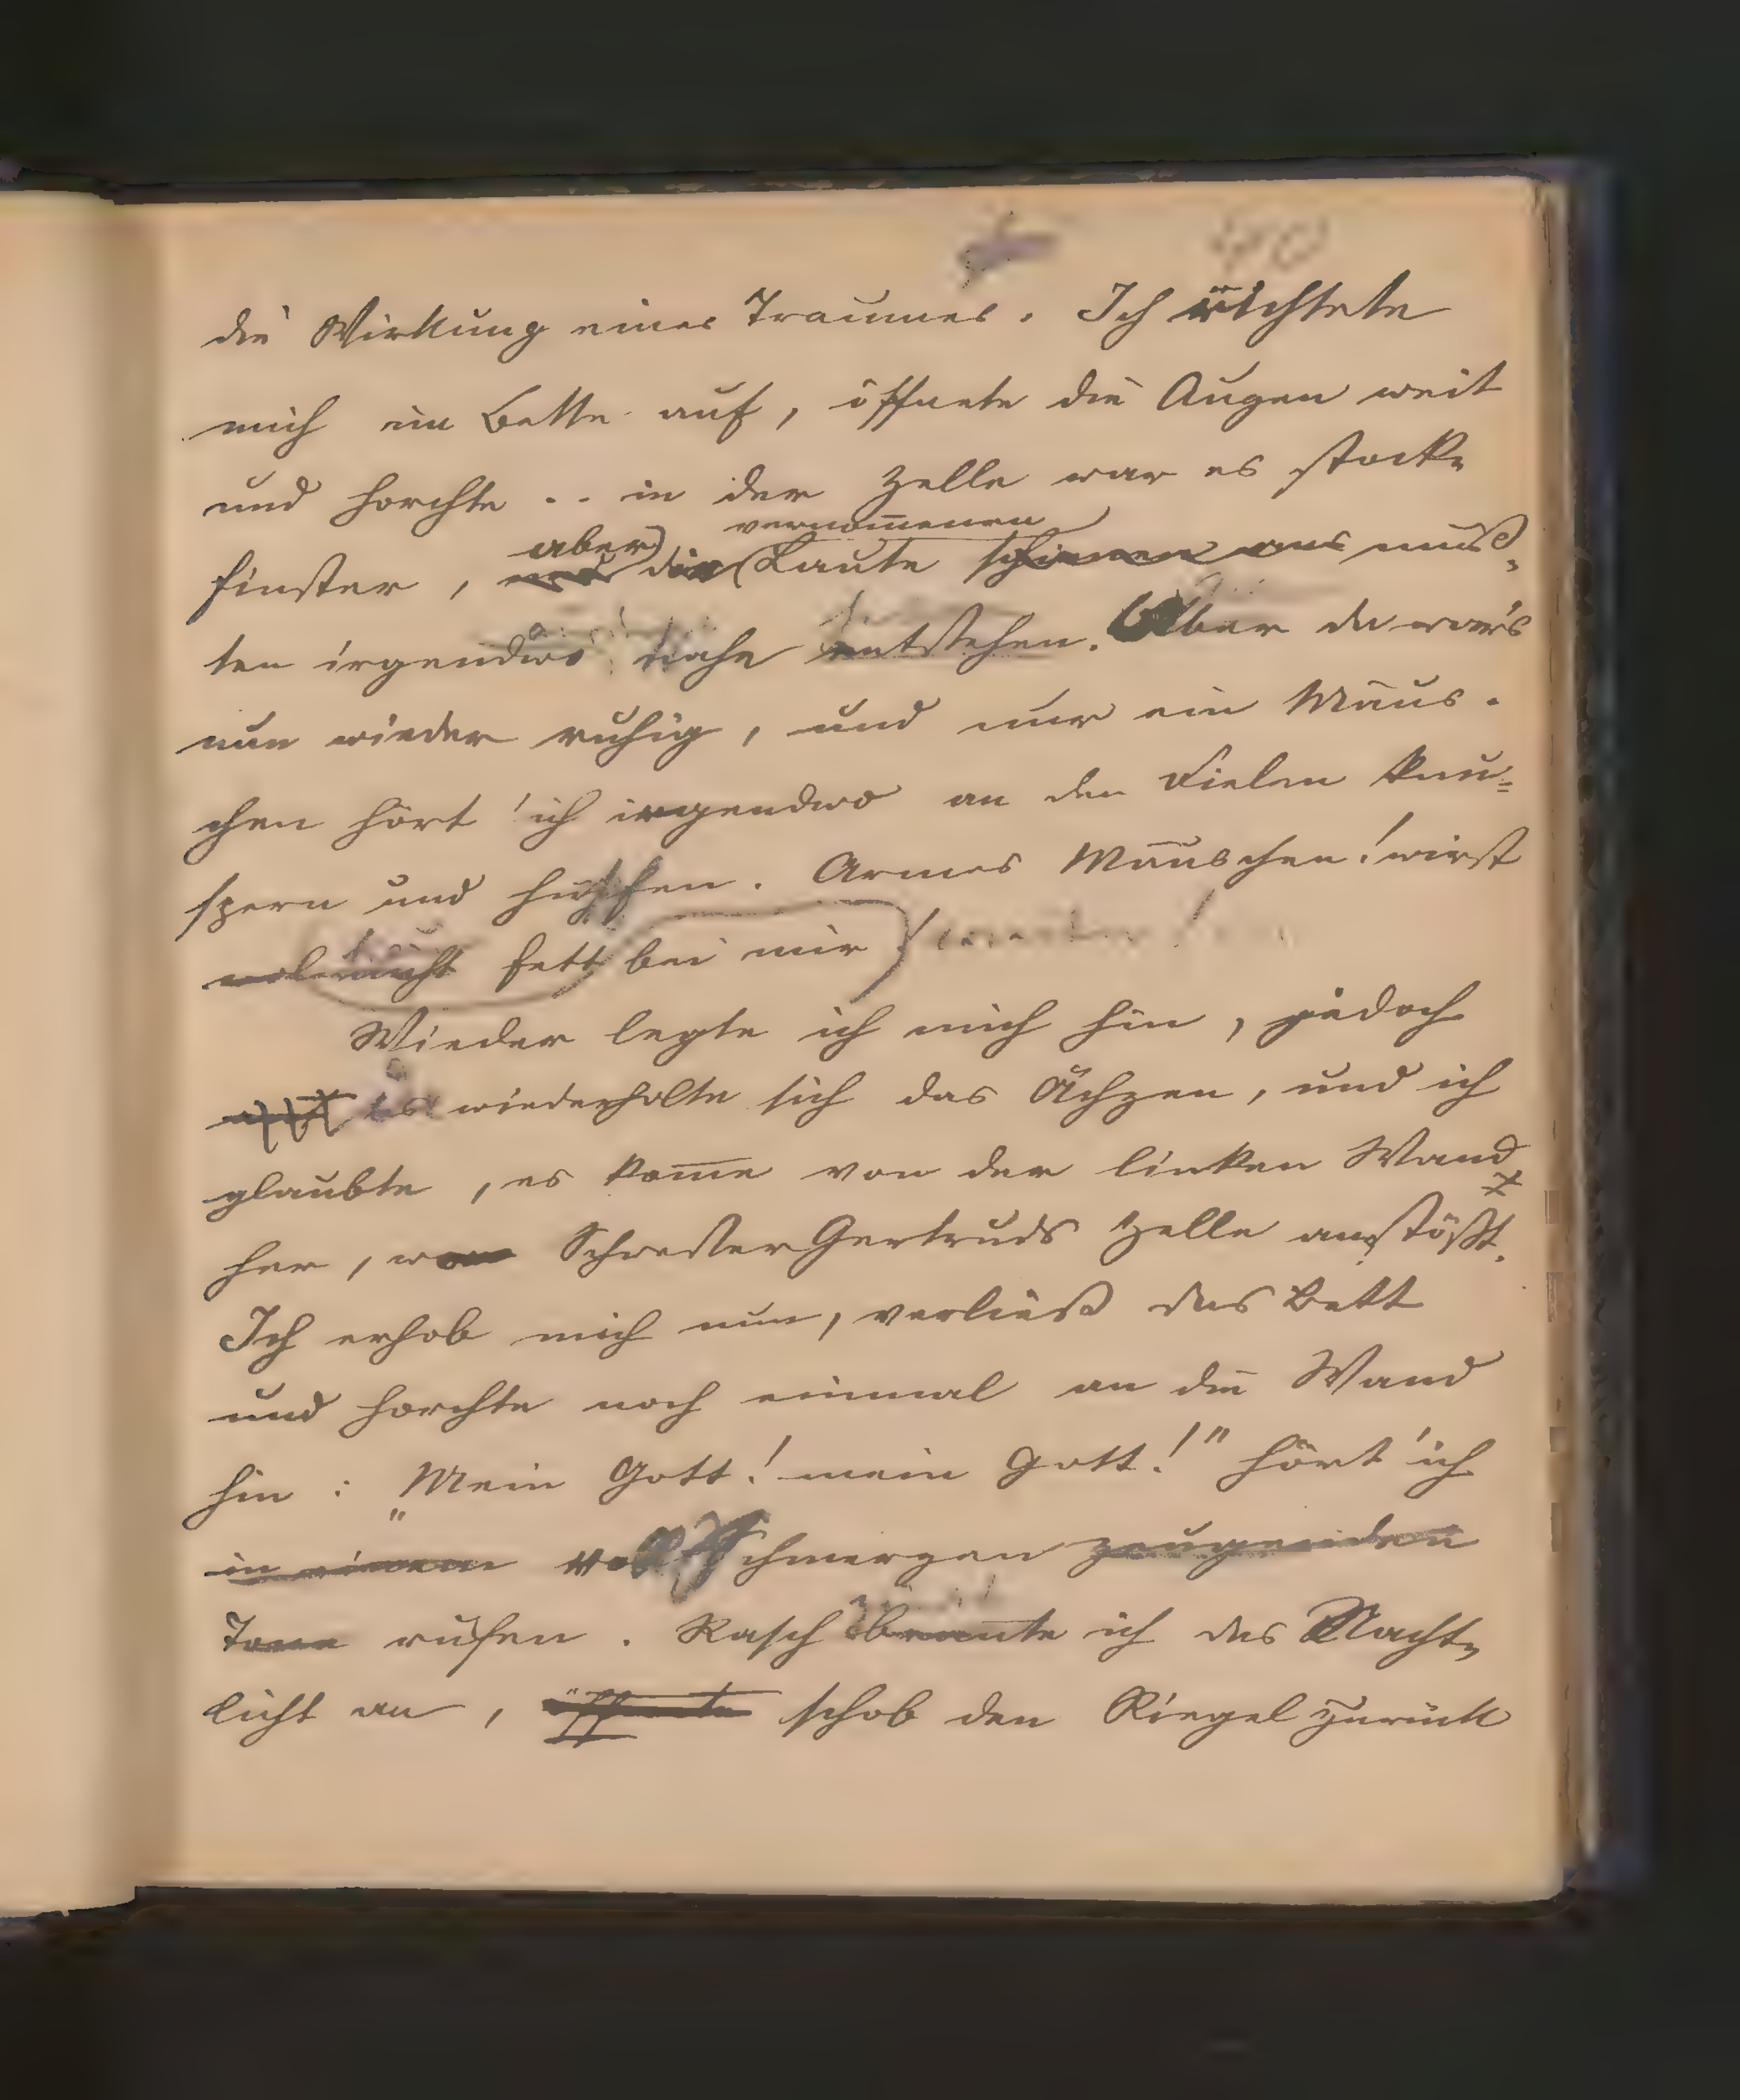 40
die Wirkung eines Traumes. Ich richtete
mich im Bette auf, öffnete die Augen weit
und horchte .. in der Zelle war es stock-
vernom̅enen
aber
finster, und die Laute schienen aus muß-
ten irgendwo nahe entstehen. Aber da war's
nun wieder ruhig, und nur ein Mäus-
chen hört' ich irgendwo an den Dielen knu-
spern und hüpfen. Armes Mäuschen! wirst
nicht fett bei mir
Wieder legte ich mich hin, jedoch
es wiederholte sich das Ächzen, und ich
glaubte, es kom̅e von der linken Wand
her, wo Schwester Gertruds Zelle anstößt.
Ich erhob mich nun, verließ das Bett
und horchte noch einmal an die Wand
hin: „Mein Gott! mein Gott!" hört' ich
in einem voll Schmerzen zeugenden
Tone rufen. Rasch brannte ich das Nacht-
licht an, öffnete schob den Riegel zurück